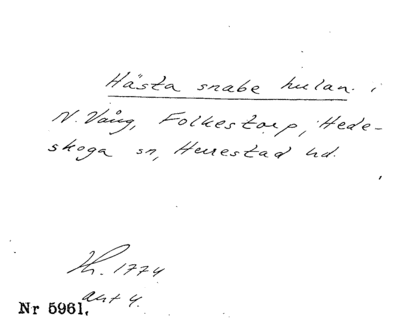 Hästa snabe hulan. i
N. Vång, Folkestorp, Hede-
skoga sn, Herrestad hd.
Lh. 1774
akt 4.
Nr 5961.